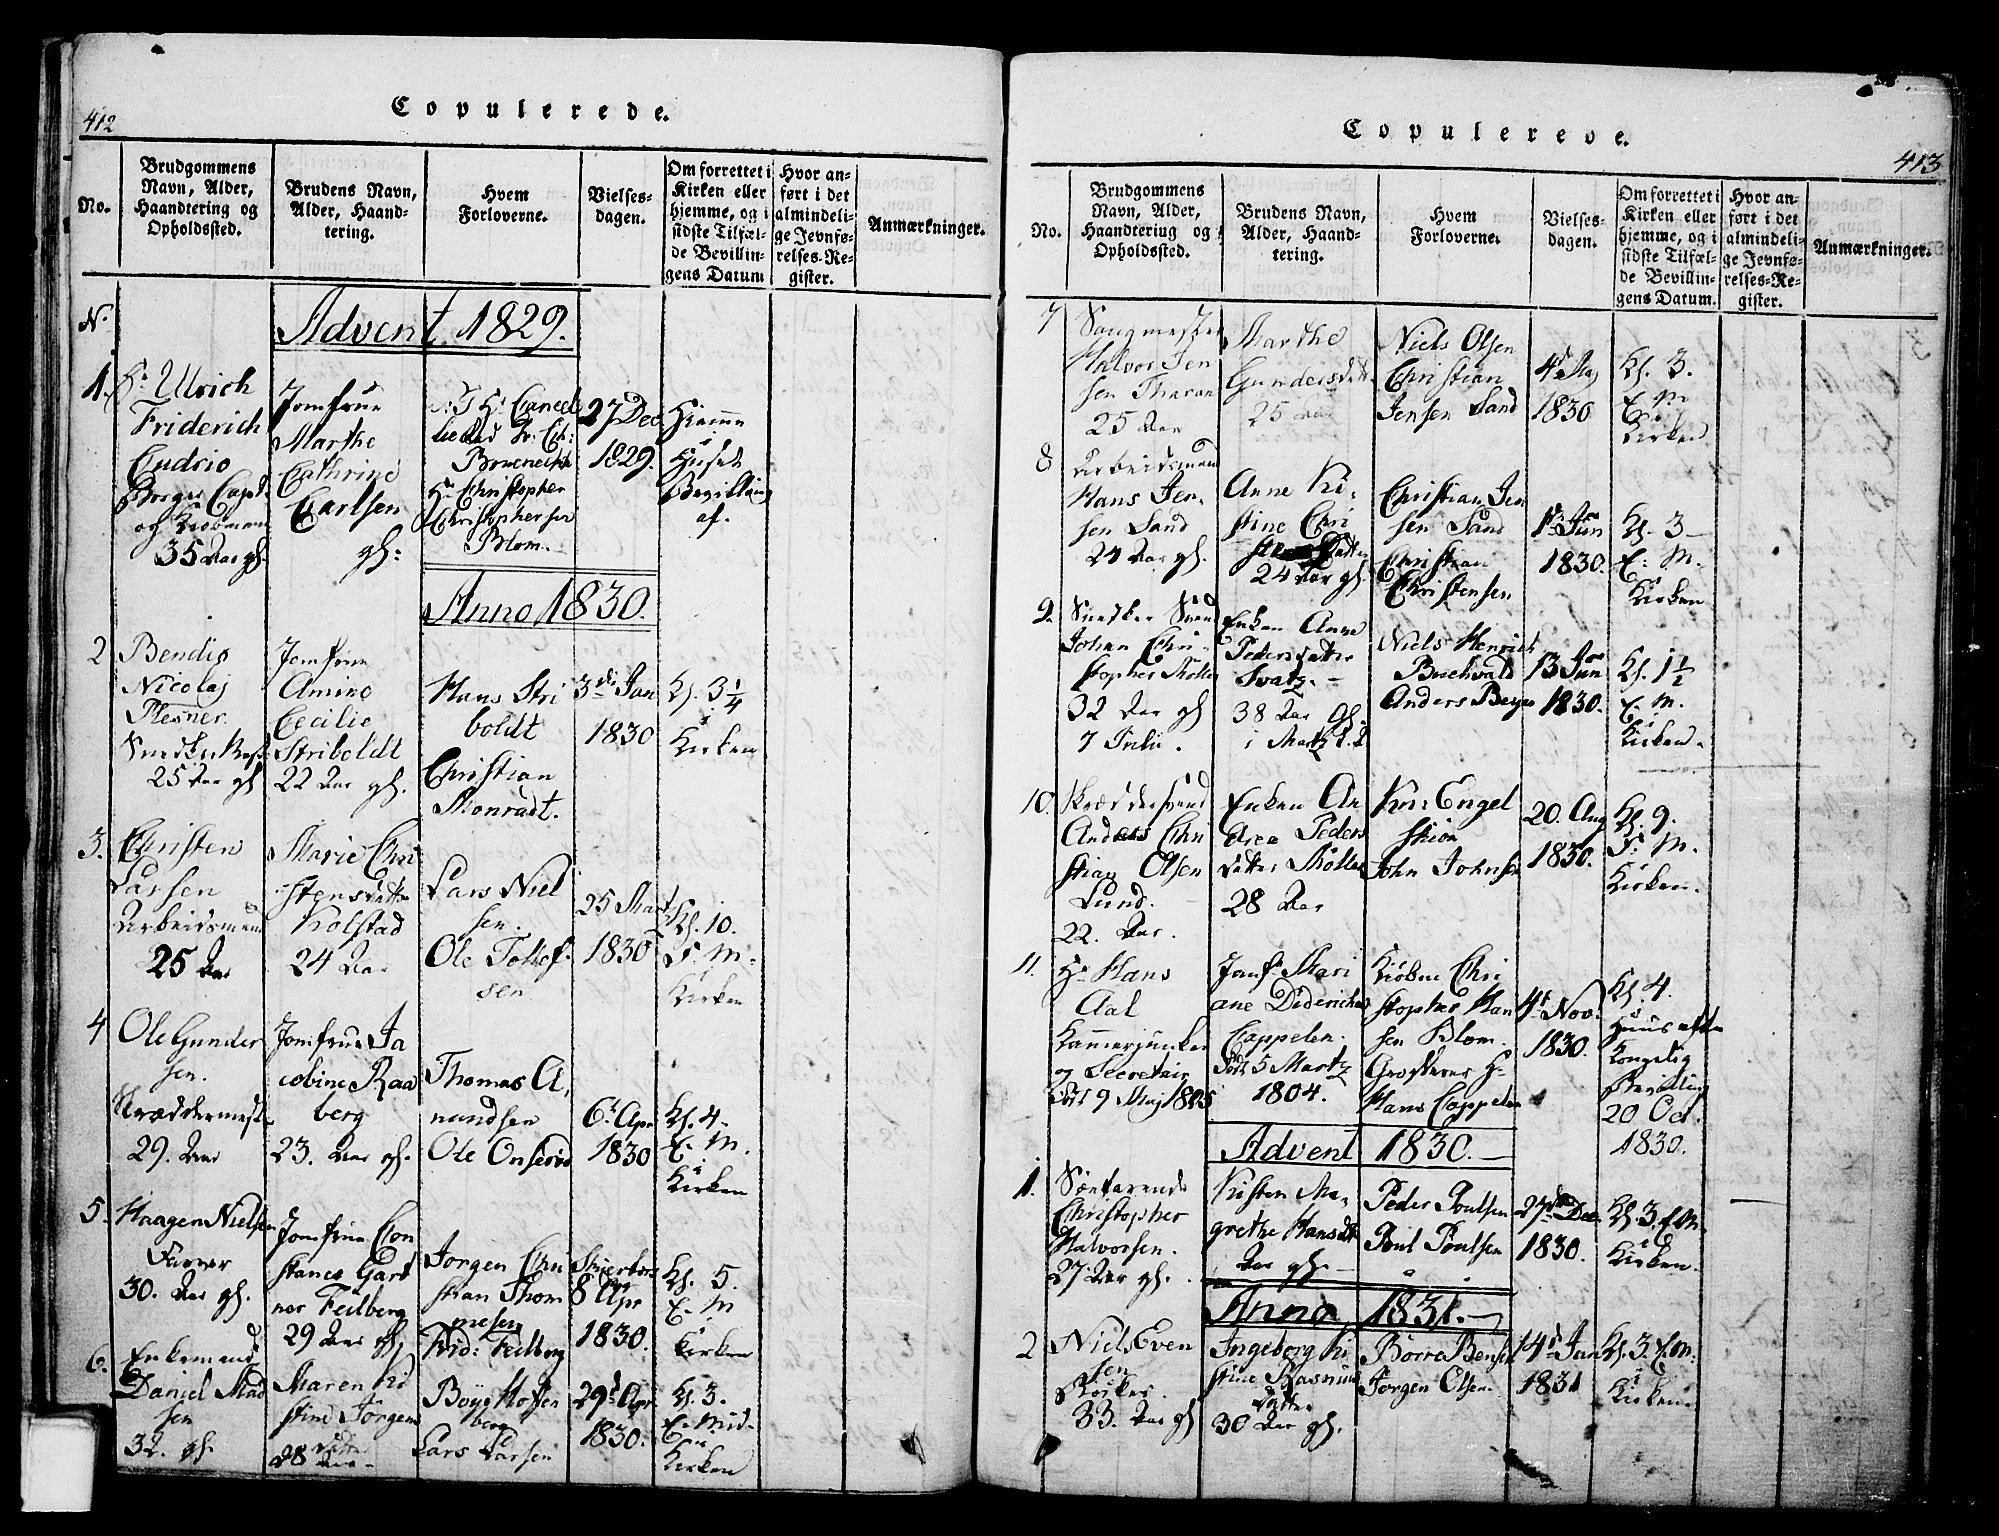 412
Copulerede.
No.
Brudgommens
Navn, Alder,
Haandtering og
Opholdssted.
Brudens Navn,
Alder, Haand-
tering.
Hvem
Forloverne.
Vielses-
dagen.
Om forrettet i
Kirken eller
hjemme, og i
sidste Tilfæl-
de Bevillin-
gens Datum
Hvor an-
ført i det
almindeli-
ge Jevnfø-
relses-Re-
gister.
Anmærkninger.
N.
Advent 1829.
1.
Hr Ulrich
Friderich
Cudrio
Borger Capt.
og Kiøbmand
35 Aar gl.
Jomfrue
Marthe
Cathrine
Carlsen
gl:
Hr Christopher
Christophersen
Blom.
27 Dec.
1829.
Hiemme
i
Huset
Bevilling
af.
Anno 1830.
2
Bendix
Nicolaj
Plesner
25 Aar gl
Jomfrue
Amine
Cecilie
Striboldt
22 Aar gl.
Hans Stri
boldt
Christian
Monradt.
3die Jan
1830
Kl. 3 1/4
i
Kirken
3.
Christen
Larsen
Arbeidsmand
25 Aar
Marie Chri
stensdatter
Kolstad
24 Aar
Lars Niel
sen.
Ole Tollef-
sen
25 Mart
1830
Kl. 10.
F. M.
i
Kirken
4
Ole Gunder
sen.
Skræddermest.
29. Aar
Jomfrue Ja
cobine Raa
berg
23. Aar gl.
Thomas A,
nundsen
Ole Onsered
6t Apr
1830
Kl. 4.
E. M.
i
Kirken
5.
Haagen Nielsen
Farver
30. Aar gl.
Jomfrue Con
stance Gart
ner Feilberg
29 Aar gl.
Jørgen Chri
stian Thom
mesen
Frid: Feilberg
Skiertors
dag
8 Apr
1830.
Kl. 5.
E. M
i
Kirken
6.
Enkemand
Daniel Mad
sen
32. gl.
Maren Ki
stine Jørgens
datter
28 Aar
Boye Hofgen
berg
Lars Larsen
29d Apr
1830.
Kl. 3.
E. Mid.
i
Kirken
Copulerede.
413
No.
Brudgommens
Navn, Alder,
Haandtering og
Opholdssted.
Brudens Navn,
Alder, Haand-
tering.
Hvem
Forloverne.
Vielses-
dagen.
Om forrettet i
Kirken eller
hjemme, og i
sidste Tilfæl-
de Bevillin-
gens Datum.
Hvor an-
ført i det
almindeli-
ge Jevnfø-
relses-Re-
gister.
Anmærkninger.
7
Saugmester
Halvor Jen
sen
25 Aar
Marthe
Gundersdatt
25 Aar
Niels Olsen
Christian
Jensen Sand
4de Maj
1830
Kl. 3.
E. M
i
Kirken
8
Arbeidsmand
Hans Jen-
sen Sand
24 Aar gl.
Anne Ki-
stine Chri
datter
24 Aar gl.
Christian Jen
sen Sand
Christian
Christensen
1ste Jun
1830.
Kl. 3
E: M.
Kirken
9.
Snedker Svend
Johan Chri-
stopher Møller
32 Aar gl
7 Febr.
Enken Anne
Pedersdatter
Svatz.
38 Aar gl.
i Martz
Niels Henrich
Buchvald
Anders Berge
13 Jun
1830.
Kl. 1 1/2
E. M.
i
Kirken.
10.
Skræddersvend
Anders Chri
stian Olsen
Lund.
22. Aar.
Enken An
drea Peders
datter Møller
28 Aar
Engel
John Johnsen
20. Aug
1830.
Kl. 9.
F. M.
Kirken.
11.
Hr Hans
Aal
Kammerjunker
og Secretair
Født 9 Maj 1805
Jomf. Mari
ane Diderichea
Cappelen.
Født 5 Martz
1804.
Kiøbm Chri
stopher Han
sen Blom.
Grosserer Hr
Hans Cappelen
4t Nov.
1830.
Kl. 4.
i
Huus efter
Kongelig
Bevilling
20 Oct.
1830.
Advent 1830.
1.
Søefarende
Christopher
Halvorsen.
27 Aar gl.
Kisten Ma-
grethe Hansdt
Aar gl.
Peder Poulsen
Poul Poulsen
27de Dec
1830.
Kl. 3. E. M.
i
Kirken.
Anno 1831.
2
Niels Even
sen
33. Aar gl
Ingeborg Ki
stine Rasmus
datter
30 Aar gl.
Børre Bensen
Jørgen Olsen.
14d Jan
1831
Kl. 3 E. M.
i
Kirken